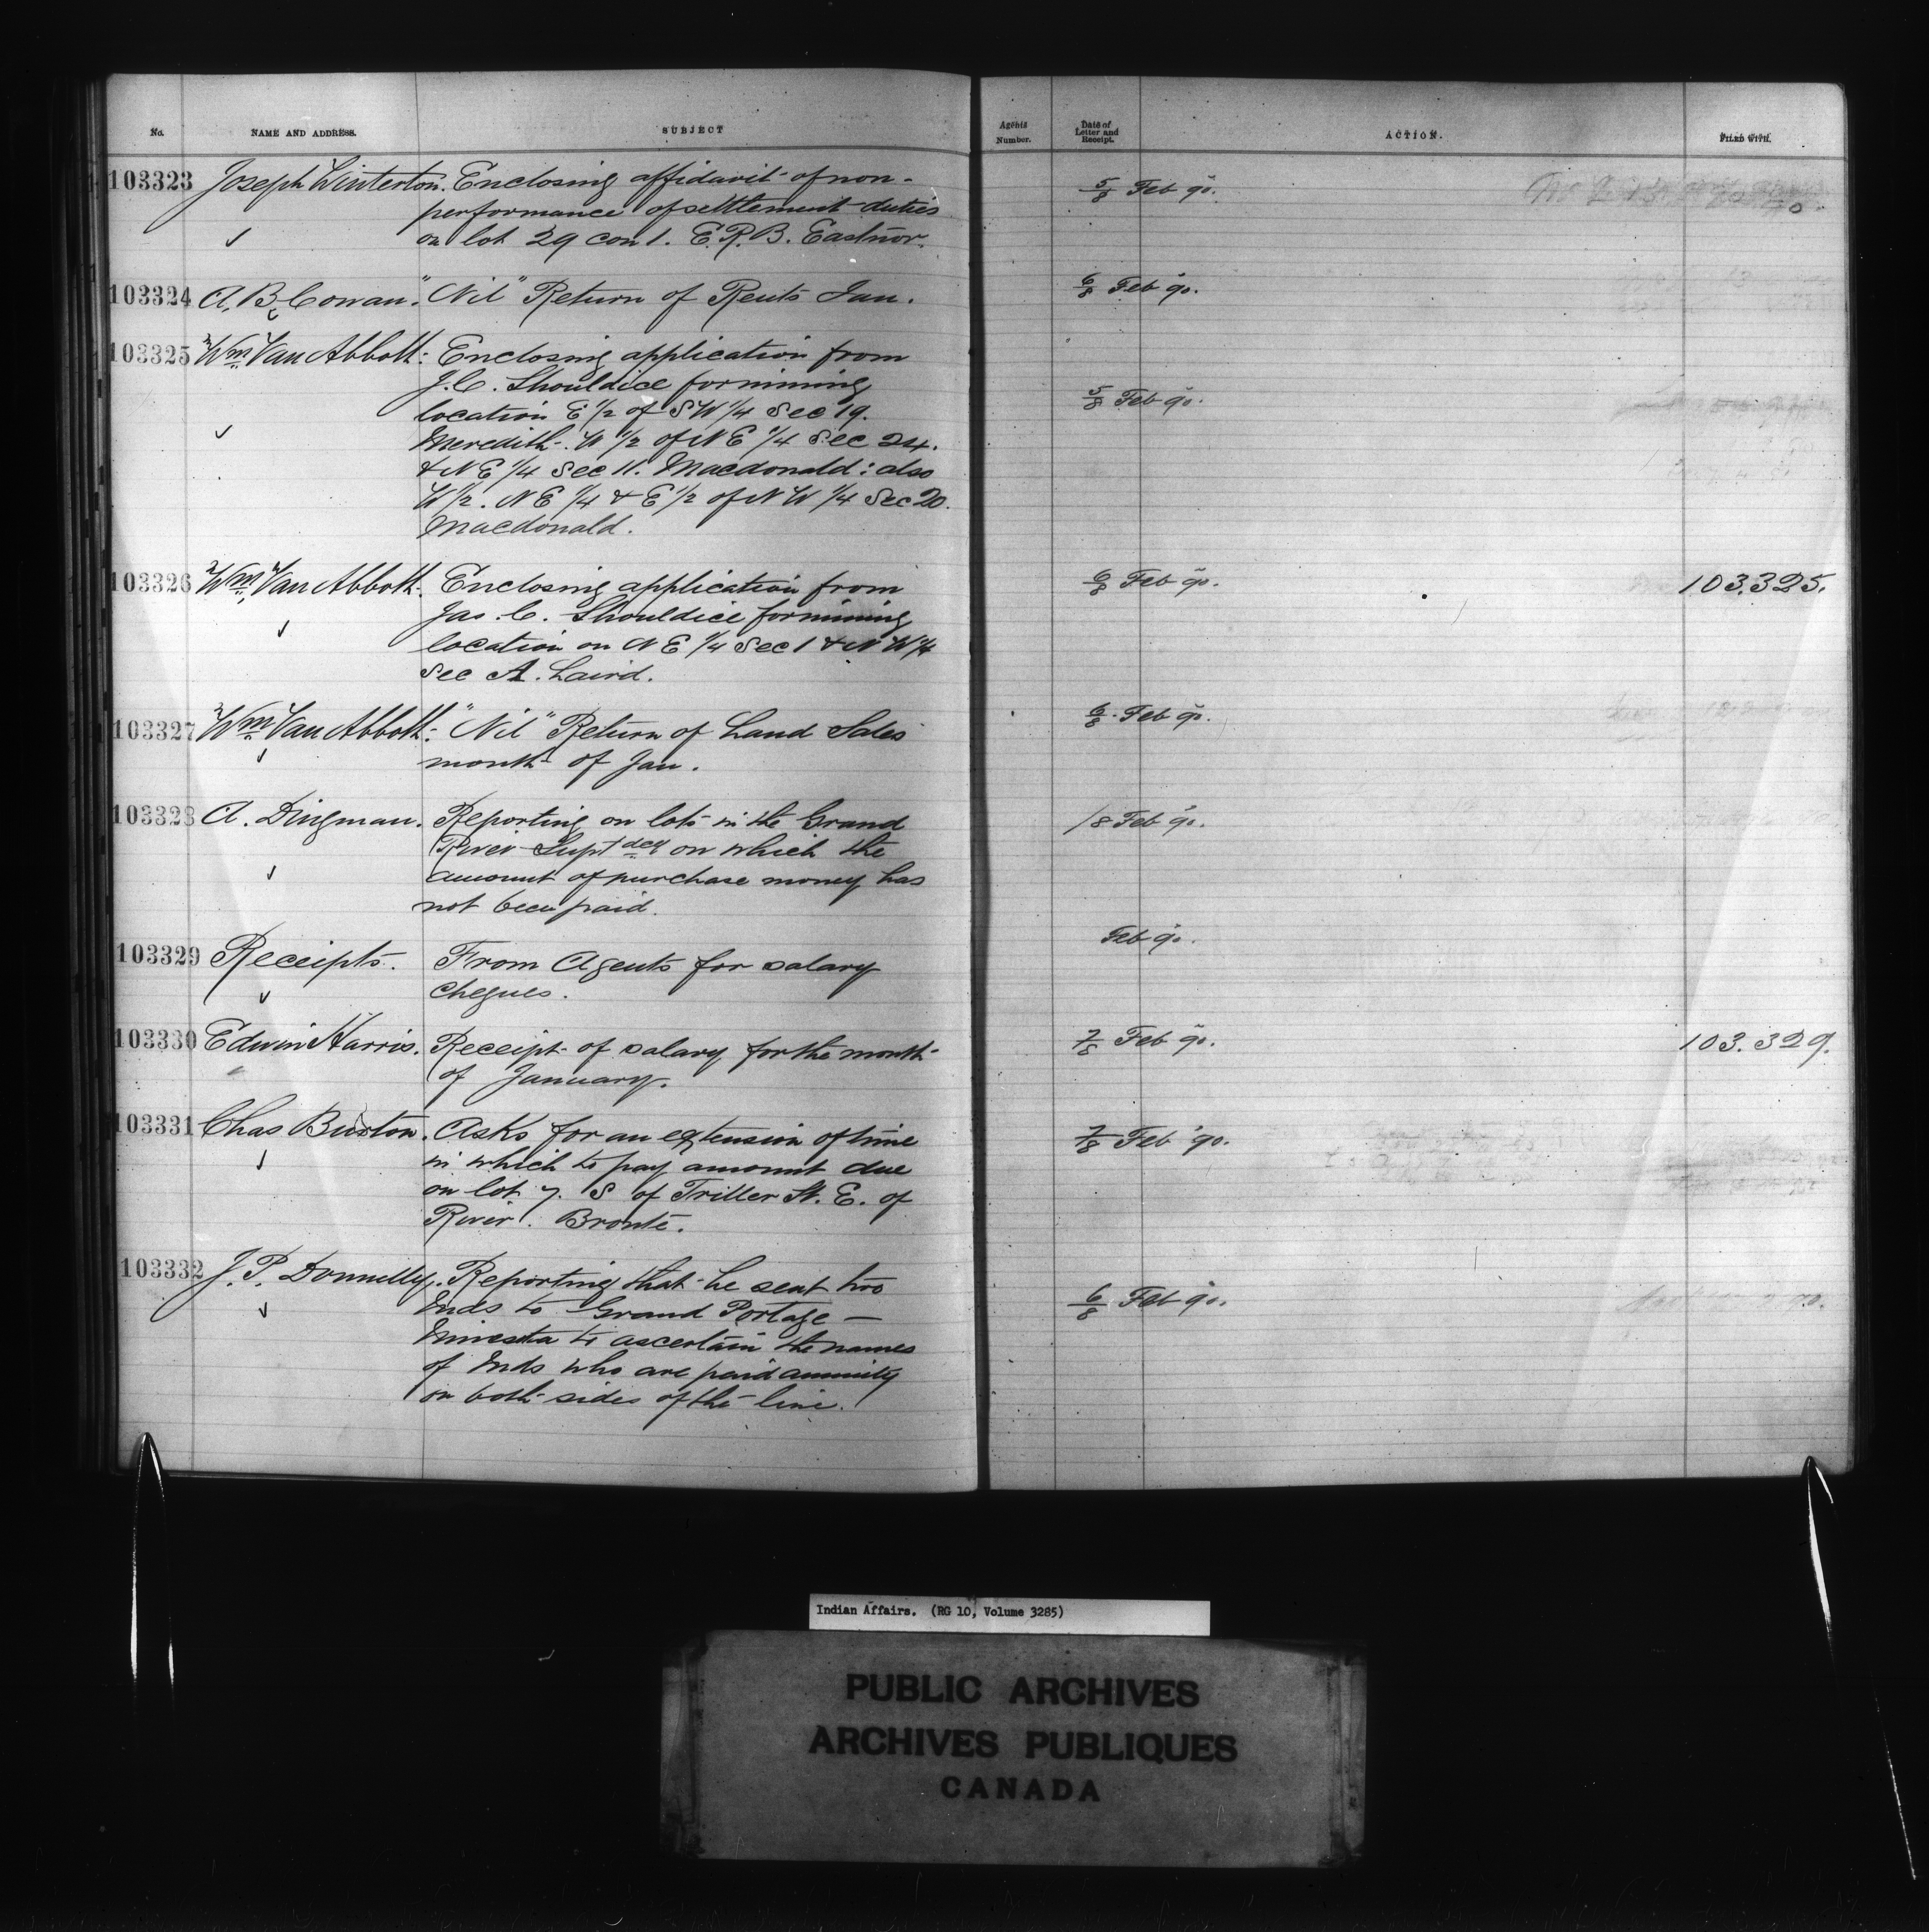 No. NAME AND ADDRESS. SUBJECT
Agents Number. Date of Letter and Receipt. ACTION. FILED WITH.
103323 Joseph Winterton. Enclosing affidavit of non- 5/8 Feb 90.
performance of settlement duties
on lot 29 con 1. E.R.B. Eastnor.
103324 A. B. Cowan. "Nil" Return of Rents Jan. 6/8 Feb 90.
103325 Wm Van Abbott: Enclosing application from
J.C. Shouldice for mining 5/8 Feb 90.
location E 1/2 of SW 1/4 Sec 19.
Meredith. W 1/2 of NE 1/4 Sec 24.
& NE 1/4 Sec 11. Macdonald: also
W 1/2. NE 1/4 & E 1/2 of NW 1/4 Sec 20.
Macdonald.
103326 Wm Van Abbott. Enclosing application from 6/8 Feb 90. 103.325.
Jas. C. Shouldice for mining
location on NE 1/4 Sec 1 & NW 1/4
Sec A. Laird.
103327 Wm Van Abbott: "Nil" Return of Land Sales 6/8 Feb 90.
month of Jan.
103328 A. Dingman. Reporting on lots in the Grand /8 Feb 90.
River Suptdcy on which the
amount of purchase money has
not been paid.
103329 Receipts. From Agents for salary Feb 90.
cheques.
103330 Edwin Harris. Receipt of salary for the month 7/8 Feb 90. 103.329.
of January.
103331 Chas Burton. Asks for an extension of time 7/8 Feb '90.
in which to pay amount due
on lot 7. S of Triller St. E. of
River. Bronte.
103332 J. P. Donnelly. Reporting that he sent two 6/8 Feb 90.
Inds to Grand Portage —
Minesta to ascertain the names
of Inds who are paid annuity
on both sides of the line.
Indian Affairs. (RG 10, Volume 3285)
PUBLIC ARCHIVES
ARCHIVES PUBLIQUES
CANADA